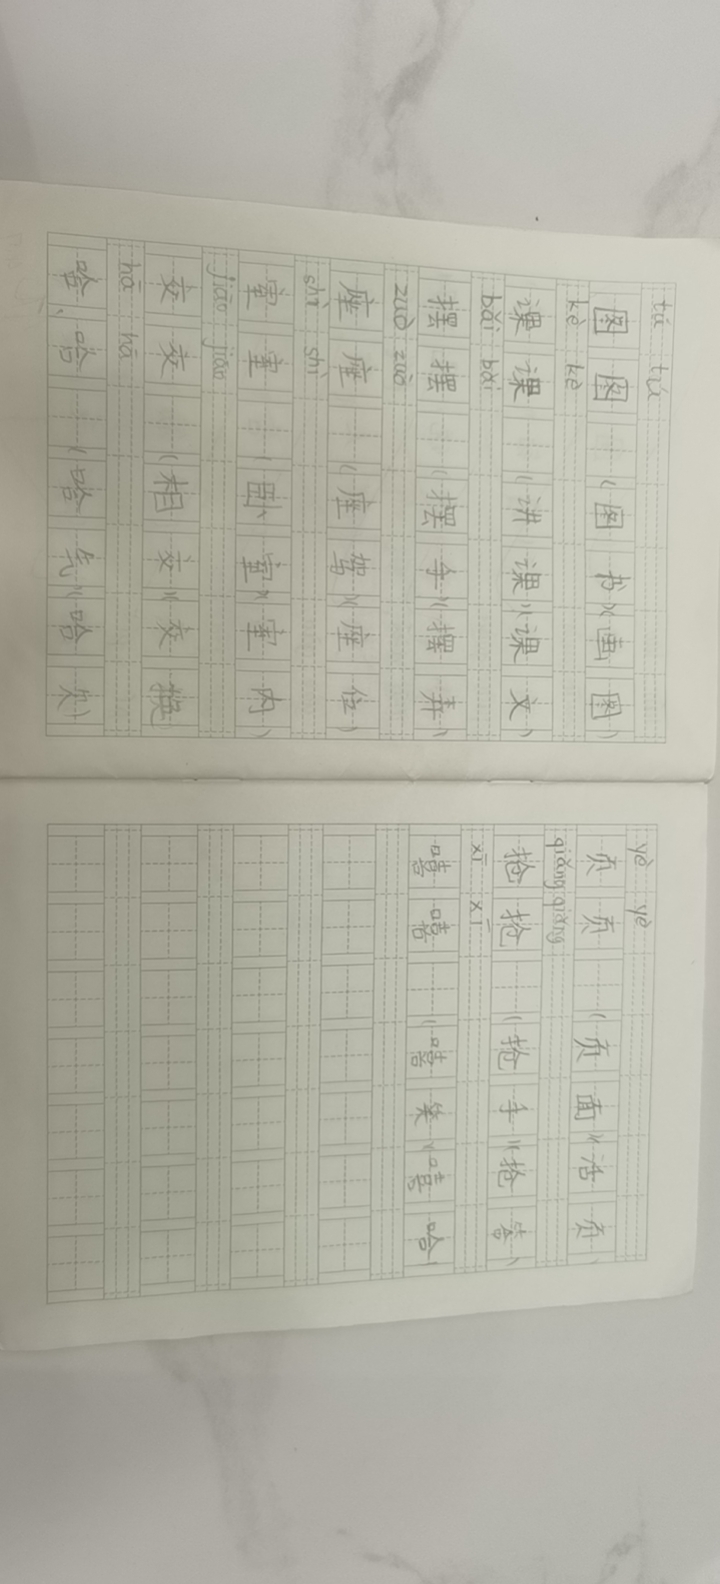 tú tú
图 图 (图 书)(画 图)
kè kè
课 课 (讲 课)(课 文)
bǎi bǎi
摆 摆 (摆 手)(摆 弄)
zuò zuò
座 座 (座 驾)(座 位)
shì shì
室 室 (卧 室)(室 内)
jiāo jiāo
交 交 (相 交)(交 换)
hā hā
哈 哈 (哈 气)(哈 欠)
yè yè
页 页 (页 面)(活 页)
qiǎng qiǎng
抢 抢 (抢 手)(抢 答)
xī xī
嘻 嘻 (嘻 笑)(嘻 哈)